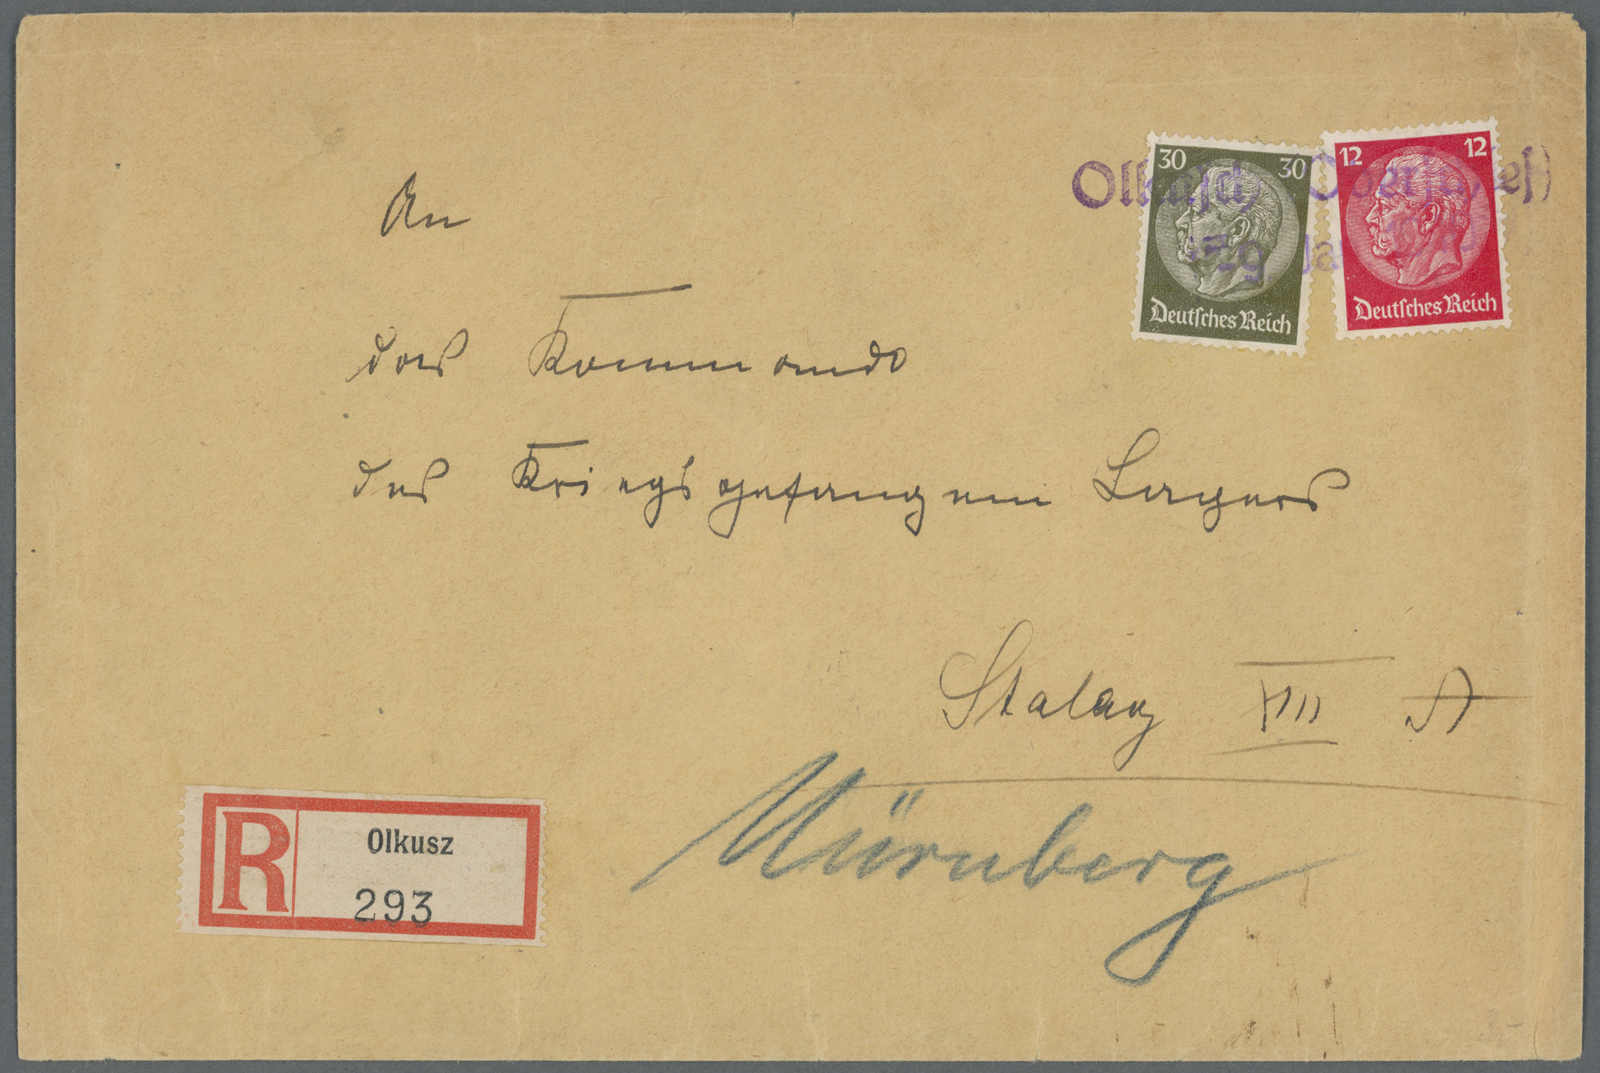 30 30
12 12
Deutsches Reich
Deutsches Reich
An
das Kommando
des Kriegsgefangenen Lagers
Stalag XIII A
Nürnberg
R
Olkusz
293